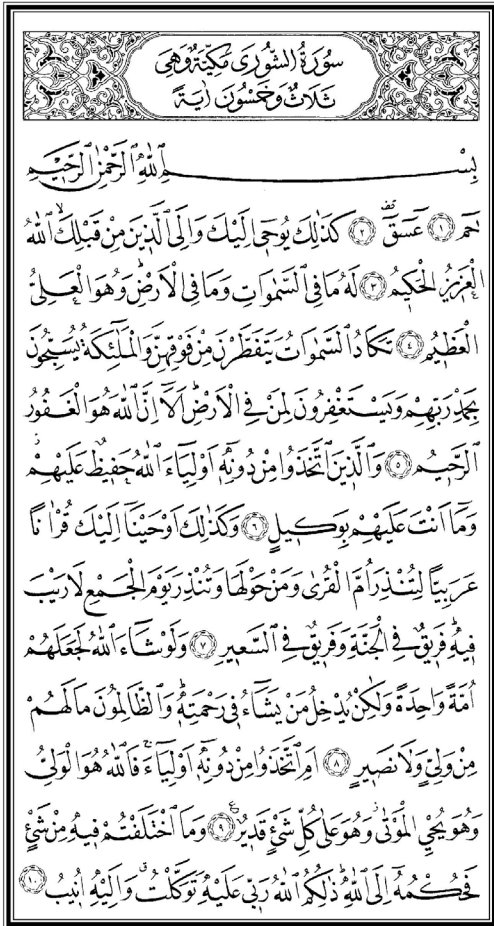 سُورَةُ الشُّورٰى مَكِّيَّةٌ وَهِىَ
ثَلَاثٌ وَخَمْسُونَ اٰيَةً
بِسْمِ اللّٰهِ الرَّحْمٰنِ الرَّحٖيمِ
حٰمٓ ﴿١﴾ عٓسٓقٓ ﴿٢﴾ كَذٰلِكَ يُوحٖٓى اِلَيْكَ وَاِلَى الَّذٖينَ مِنْ قَبْلِكَۙ اللّٰهُ
الْعَزٖيزُ الْحَكٖيمُ ﴿٣﴾ لَهُ مَا فِى السَّمٰوَاتِ وَمَا فِى الْاَرْضِۜ وَهُوَ الْعَلِىُّ
الْعَظٖيمُ ﴿٤﴾ تَكَادُ السَّمٰوَاتُ يَتَفَطَّرْنَ مِنْ فَوْقِهِنَّ وَالْمَلٰٓئِكَةُ يُسَبِّحُونَ
بِحَمْدِ رَبِّهِمْ وَيَسْتَغْفِرُونَ لِمَنْ فِى الْاَرْضِۜ اَلَٓا اِنَّ اللّٰهَ هُوَ الْغَفُورُ
الرَّحٖيمُ ﴿٥﴾ وَالَّذٖينَ اتَّخَذُوا مِنْ دُونِهٖٓ اَوْلِيَٓاءَ اللّٰهُ حَفٖيظٌ عَلَيْهِمْۘ
وَمَٓا اَنْتَ عَلَيْهِمْ بِوَكٖيلٍ ﴿٦﴾ وَكَذٰلِكَ اَوْحَيْنَٓا اِلَيْكَ قُرْاٰنًا
عَرَبِيًّا لِتُنْذِرَ اُمَّ الْقُرٰى وَمَنْ حَوْلَهَا وَتُنْذِرَ يَوْمَ الْجَمْعِ لَا رَيْبَ
فٖيهِۜ فَرٖيقٌ فِى الْجَنَّةِ وَفَرٖيقٌ فِى السَّعٖيرِ ﴿٧﴾ وَلَوْ شَٓاءَ اللّٰهُ لَجَعَلَهُمْ
اُمَّةً وَاحِدَةً وَلٰكِنْ يُدْخِلُ مَنْ يَشَٓاءُ فٖى رَحْمَتِهٖۜ وَالظَّالِمُونَ مَا لَهُمْ
مِنْ وَلِىٍّ وَلَا نَصٖيرٍ ﴿٨﴾ اَمِ اتَّخَذُوا مِنْ دُونِهٖٓ اَوْلِيَٓاءَۚ فَاللّٰهُ هُوَ الْوَلِىُّ
وَهُوَ يُحْيِى الْمَوْتٰىۘ وَهُوَ عَلٰى كُلِّ شَىْءٍ قَدٖيرٌ ﴿٩﴾ وَمَا اخْتَلَفْتُمْ فٖيهِ مِنْ شَىْءٍ
فَحُكْمُهُٓ اِلَى اللّٰهِۜ ذٰلِكُمُ اللّٰهُ رَبّٖى عَلَيْهِ تَوَكَّلْتُۗ وَاِلَيْهِ اُنٖيبُ ﴿١٠﴾